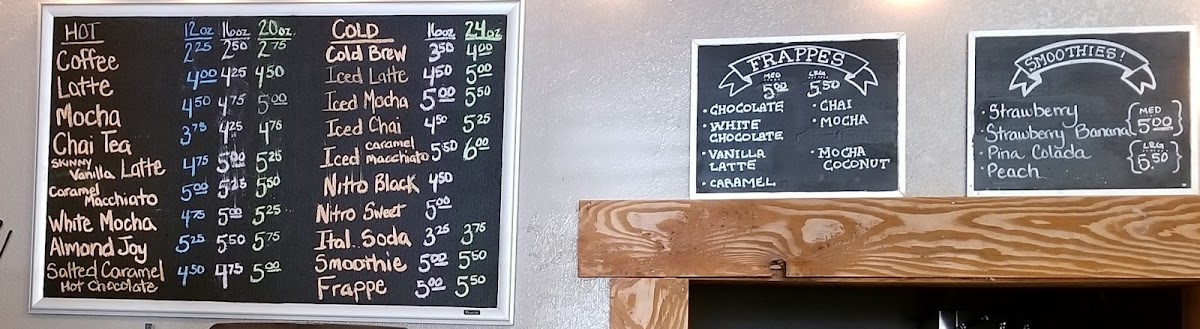 HOT 12oz 16oz 20oz.
Coffee 2.25 2.50 2.75
Latte 4.00 4.25 4.50
Mocha 4.50 4.75 5.00
Chai Tea 3.75 4.25 4.75
Skinny Vanilla Latte 4.75 5.00 5.25
Caramel Macchiato 5.00 5.25 5.50
White Mocha 4.75 5.00 5.25
Almond Joy 5.25 5.50 5.75
Salted Caramel Hot Chocolate 4.50 4.75 5.00
COLD 16oz 24oz
Cold Brew 3.50 4.00
Iced Latte 4.50 5.00
Iced Mocha 5.00 5.50
Iced Chai 4.50 5.25
Iced caramel macchiato 5.50 6.00
Nitro Black 4.50
Nitro Sweet 5.00
Ital. Soda 3.25 3.75
Smoothie 5.00 5.50
Frappe 5.00 5.50
FRAPPES
MED LRG
5.00 5.50
· CHOCOLATE
· WHITE
CHOCOLATE
· VANILLA
LATTE
· CARAMEL
· CHAI
· MOCHA
· MOCHA
COCONUT
SMOOTHIES!
· Strawberry
· Strawberry Banana
· Pina Colada
· Peach
MED
5.00
LRG
5.50